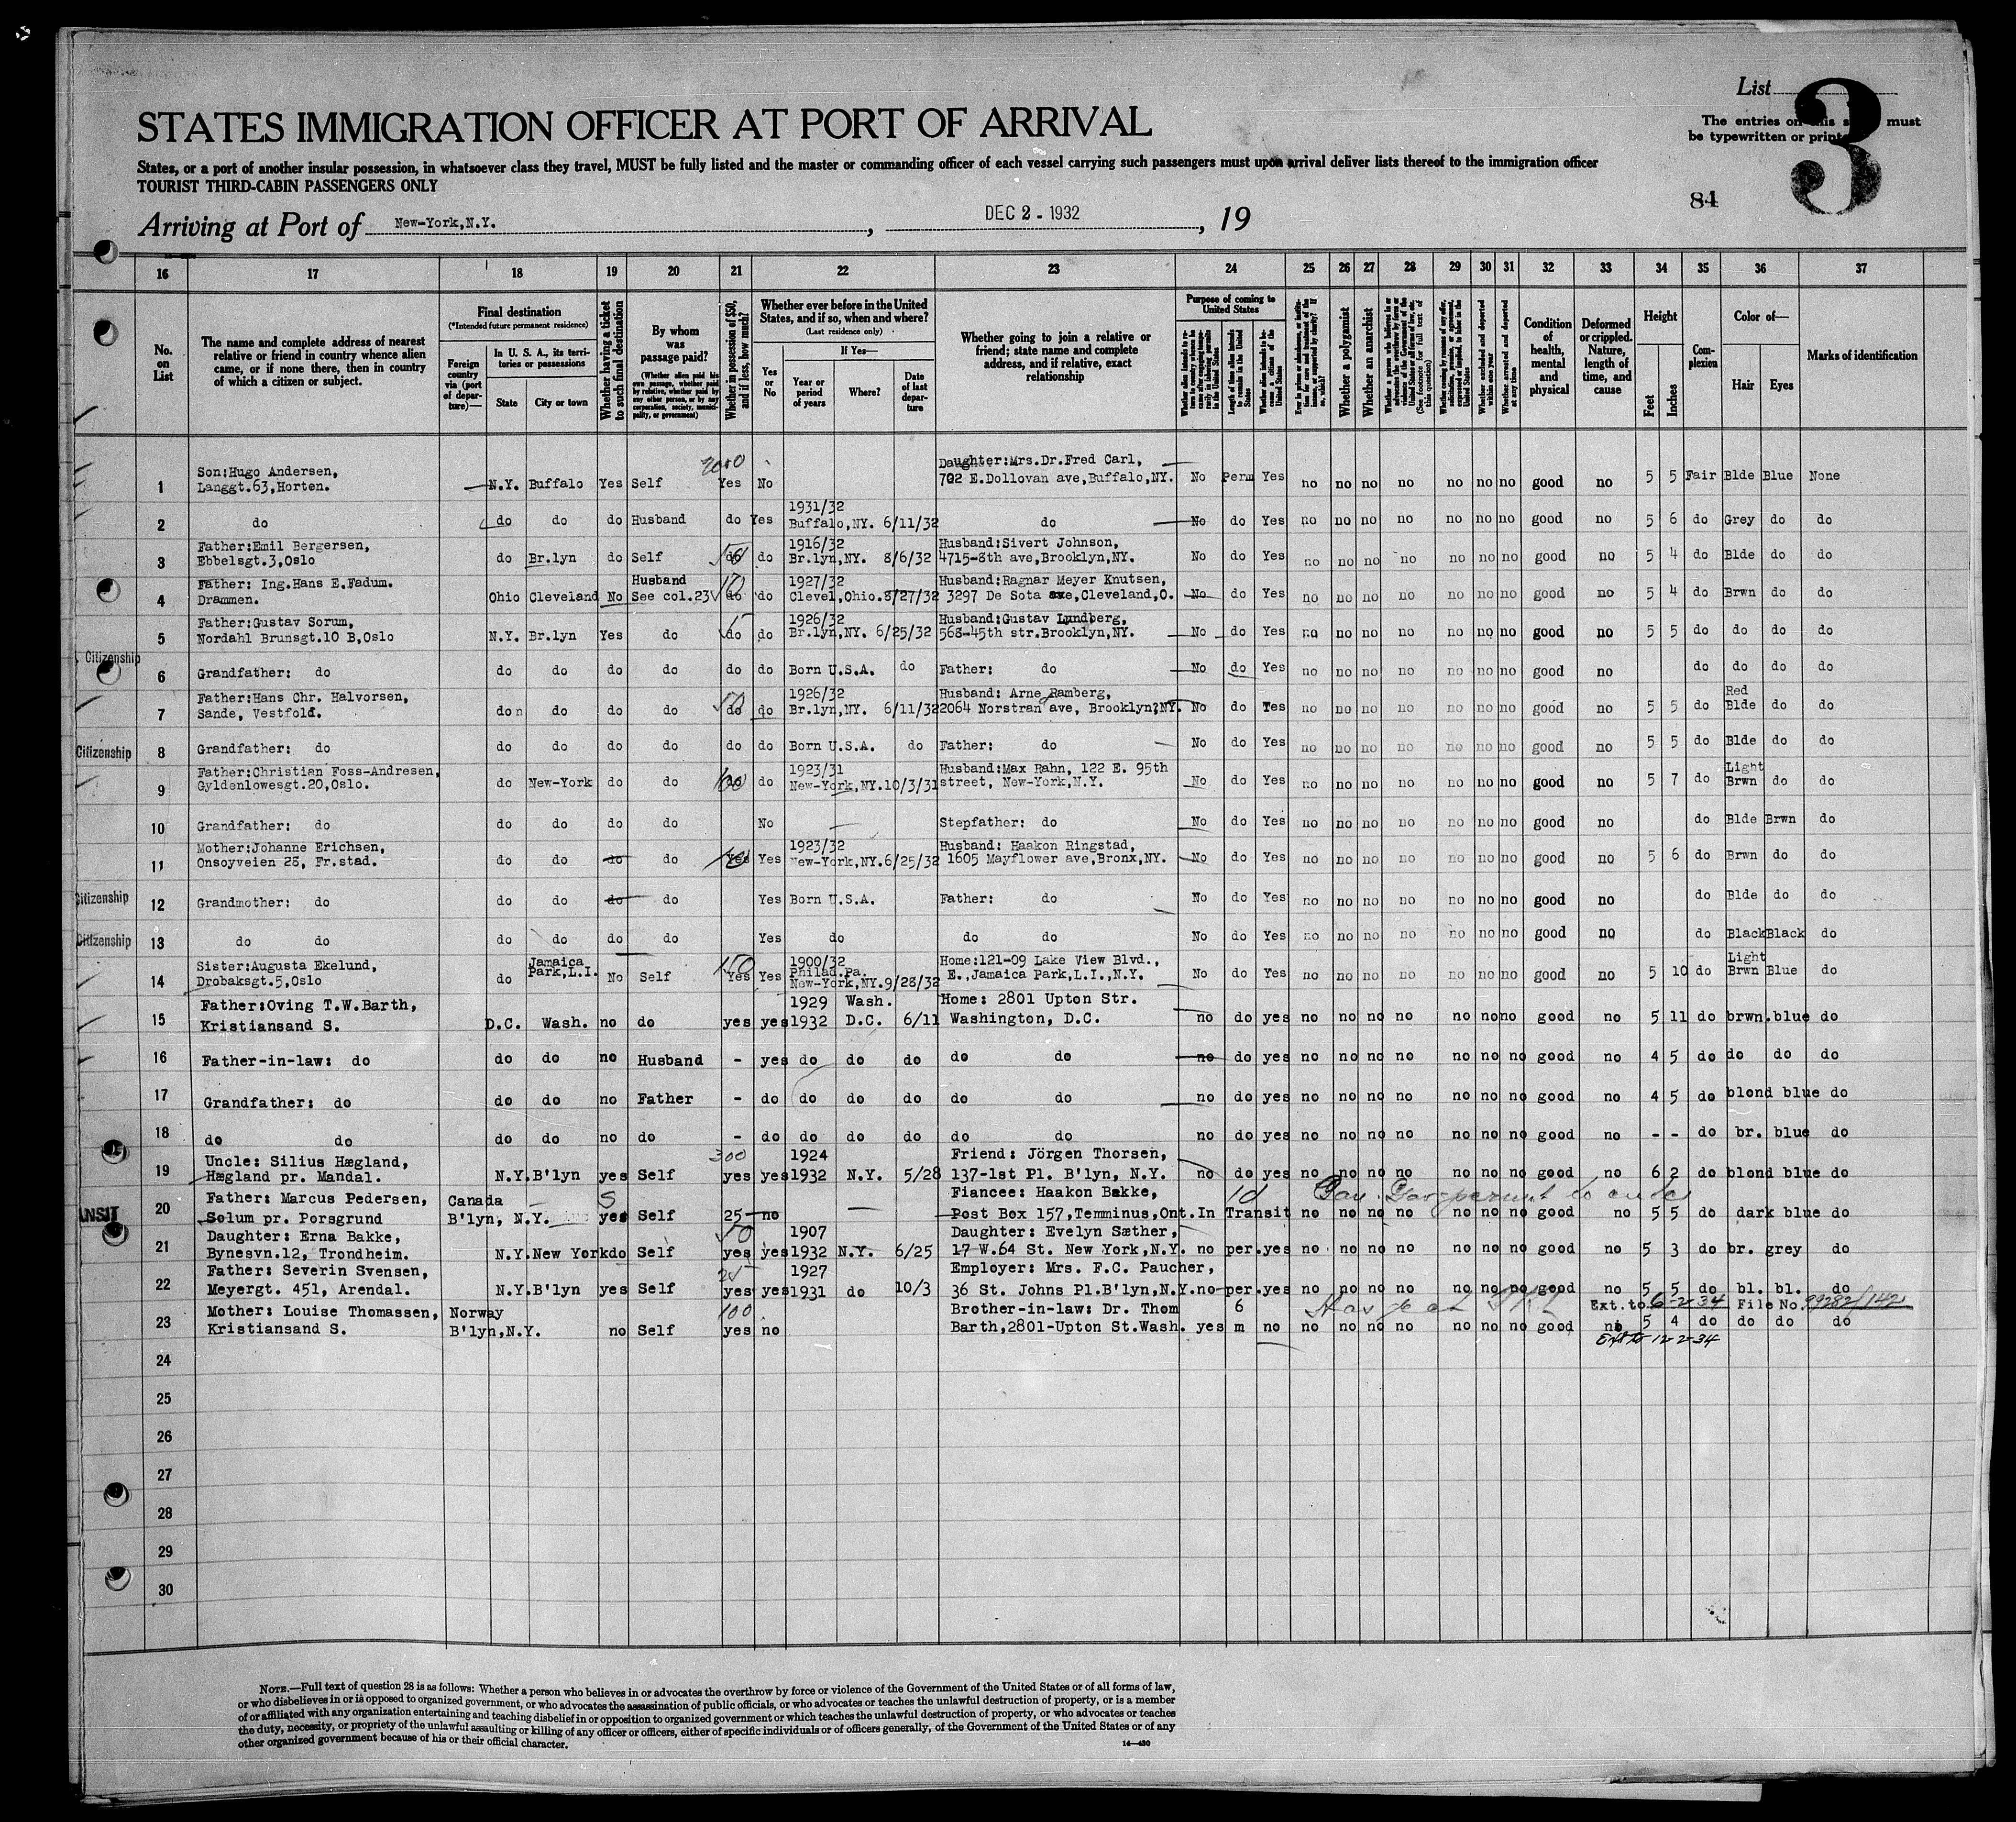 List
3
STATES IMMIGRATION OFFICER AT PORT OF ARRIVAL
The entries on this must
be typewritten or printe
States, or a port of another insular possession, in whatsoever class they travel, MUST be fully listed and the master or commanding officer of each vessel carrying such passengers must upon arrival deliver lists thereof to the immigration officer
TOURIST THIRD-CABIN PASSENGERS ONLY
84
Arriving at Port of New-York,N.Y. , DEC 2 - 1932 , 19
16 17 18 19 20 21 22 23 24 25 26 27 28 29 30 31 32 33 34 35 36 37
No. on List
The name and complete address of nearest relative or friend in country whence alien came, or if none there, then in country of which a citizen or subject.
Final destination
(*Intended future permanent residence)
Foreign country via (port of departure)—
In U. S. A., its territories or possessions
State
City or town
Whether having a ticket to such final destination
By whom was passage paid?
(Whether alien paid his own passage, whether paid by relative, whether paid by any other person, or by any corporation, society, municipality, or government)
Whether in possession of $50, and if less, how much?
Whether ever before in the United States, and if so, when and where?
(Last residence only)
Yes or No
If Yes—
Year or period of years
Where?
Date of last departure
Whether going to join a relative or friend; state name and complete address, and if relative, exact relationship
Purpose of coming to United States
Length of time alien intends to remain in the United States
Whether alien intends to become a citizen of the United States
Whether a polygamist
Whether an anarchist
(See footnote for full text of this question)
Whether excluded and deported within one year
Whether arrested and deported at any time
Condition of health, mental and physical
Deformed or crippled. Nature, length of time, and cause
Height
Feet
Inches
Complexion
Color of—
Hair
Eyes
Marks of identification
2000
1 Son:Hugo Andersen, Daughter:Mrs.Dr.Fred Carl,
Langgt.63,Horten. N.Y. Buffalo Yes Self Yes No 702 E.Dollovan ave,Buffalo,NY. No Perm Yes no no no no no no no good no 5 5 Fair Blde Blue None
1931/32
2 do do do do Husband do Yes Buffalo,NY. 6/11/32 do No do Yes no no no no no no no good no 5 6 do Grey do do
3 Father:Emil Bergersen, 1916/32 Husband:Sivert Johnson,
Ebbelsgt.3,Oslo do Br.lyn do Self do do Br.lyn,NY. 8/6/32 4715-8th ave,Brooklyn,NY. No do Yes no no no no no no no good no 5 4 do Blde do do
4 Father: Ing.Hans E.Fadum. Husband 1927/32 Husband:Ragnar Meyer Knutsen,
Drammen. Ohio Cleveland No See col.23 do do Clevel,Ohio.8/27/32 3297 De Sota ave,Cleveland,O. No do Yes no no no no no no no good no 5 4 do Brwn do do
5 Father:Gustav Sorum, 1926/32 Husband:Gustav Lundberg,
Nordahl Brunsgt.10 B,Oslo N.Y. Br.lyn Yes do do do Br.lyn,NY. 6/25/32 568-45th str.Brooklyn,NY. No do Yes no no no no no no no good no 5 5 do do do do
Citizenship
6 Grandfather: do do do do do do do Born U.S.A. do Father: do No do Yes no no no no no no no good no do do do do
7 Father:Hans Chr. Halvorsen, 1926/32 Husband: Arne Ramberg, Red
Sande, Vestfold. do do do do do do Br.lyn,NY. 6/11/32 2064 Norstran ave, Brooklyn,NY. No do Yes no no no no no no no good no 5 5 do Blde do do
Citizenship
8 Grandfather: do do do do do do do Born U.S.A. do Father: do No do Yes no no no no no no no good no 5 5 do Blde do do
9 Father:Christian Foss-Andresen, 1923/31 Husband:Max Rahn, 122 E. 95th Light
Gyldenlowesgt.20,Oslo. do New-York do do do do New-York,NY.10/3/31 street, New-York,N.Y. No do Yes no no no no no no no good no 5 7 do Brwn do do
10 Grandfather: do do do do do No Stepfather: do No do Yes no no no no no no no good no do Blde Brwn do
11 Mother:Johanne Erichsen, 1923/32 Husband: Haakon Ringstad,
Onsoyveien 28, Fr.stad. do do do do Yes Yes New-York,NY.6/25/32 1605 Mayflower ave,Bronx,NY. No do Yes no no no no no no no good no 5 6 do Brwn do do
Citizenship
12 Grandmother: do do do do do Yes Born U.S.A. Father: do No do Yes no no no no no no no good no do Blde do do
Citizenship
13 do do do do do do Yes do do do No do Yes no no no no no no no good no do Black Black do
14 Sister:Augusta Ekelund, Jamaica 150 1900/32 Home:121-09 Lake View Blvd., Light
Drobaksgt.5,Oslo do Park,L.I. No Self Yes Yes Philad.Pa. New-York,NY.9/28/32 E.,Jamaica Park,L.I.,N.Y. No do Yes no no no no no no no good no 5 10 do Brwn Blue do
15 Father:Oving T.W.Barth, 1929 Wash. Home: 2801 Upton Str.
Kristiansand S. D.C. Wash. no do yes yes 1932 D.C. 6/11 Washington, D.C. no do yes no no no no no no no good no 5 11 do brwn.blue do
16 Father-in-law: do do do no Husband - yes do do do do do no do yes no no no no no no no good no 4 5 do do do do
17 Grandfather: do do do no Father - do do do do do do no do yes no no no no no no no good no 4 5 do blond blue do
18 do do do do no do - do do do do do do no do yes no no no no no no no good no - - do br. blue do
19 Uncle: Silius Hægland, 300 1924 Friend: Jörgen Thorsen,
Hægland pr. Mandal. N.Y.B'lyn yes Self yes yes 1932 N.Y. 5/28 137-1st Pl. B'lyn, N.Y. no do yes no no no no no no no good no 6 2 do blond blue do
ANSIT
20 Father: Marcus Pedersen, Canada Fiancee: Haakon Bakke, 1d
Solum pr. Porsgrund B'lyn, N.Y. yes Self 25 no Post Box 157,Temminus,Ont. In Transit no no no no no no no good no 5 5 do dark blue do
21 Daughter: Erna Bakke, 50 1907 Daughter: Evelyn Sæther,
Bynesvn.12, Trondheim. N.Y.New York do Self yes yes 1932 N.Y. 6/25 17 W.64 St. New York,N.Y. no per.yes no no no no no no no good no 5 3 do br. grey do
22 Father: Severin Svensen, 25 1927 Employer: Mrs. F.C. Paucher,
Meyergt. 451, Arendal. N.Y.B'lyn yes Self yes yes 1931 do 10/3 36 St. Johns Pl.B'lyn,N.Y. no per.yes no no no no no no no good no 5 5 do bl. bl. do
23 Mother: Louise Thomassen, Norway 100 Brother-in-law: Dr. Thom 6 Ext.to 6-2-34 File No. 99282/142
Kristiansand S. B'lyn,N.Y. no Self yes no Barth,2801-Upton St.Wash. yes m no no no no no no no no good no 5 4 do do do do
Ext to 12-2-34
24
25
26
27
28
29
30
NOTE.—Full text of question 28 is as follows: Whether a person who believes in or advocates the overthrow by force or violence of the Government of the United States or of all forms of law,
or who disbelieves in or is opposed to organized government, or who advocates the assassination of public officials, or who advocates or teaches the unlawful destruction of property, or is a member
of or affiliated with any organization entertaining and teaching disbelief in or opposition to organized government or which teaches the unlawful destruction of property, or who advocates or teaches
the duty, necessity, or propriety of the unlawful assaulting or killing of any officer or officers, either of specific individuals or of officers generally, of the Government of the United States or of any
other organized government because of his or their official character.
14—430